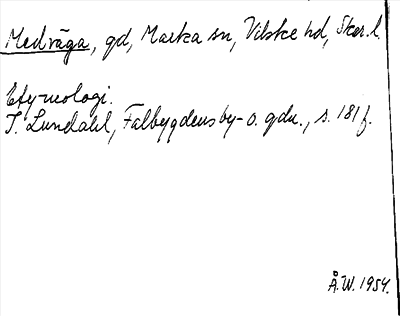 Medväga, gd, Marka sn, Vilske hd, Skar. l
Etymologi.
I. Lundahl, Falbygdens by- o. gdn., s. 181 f.
Å.W. 1954.